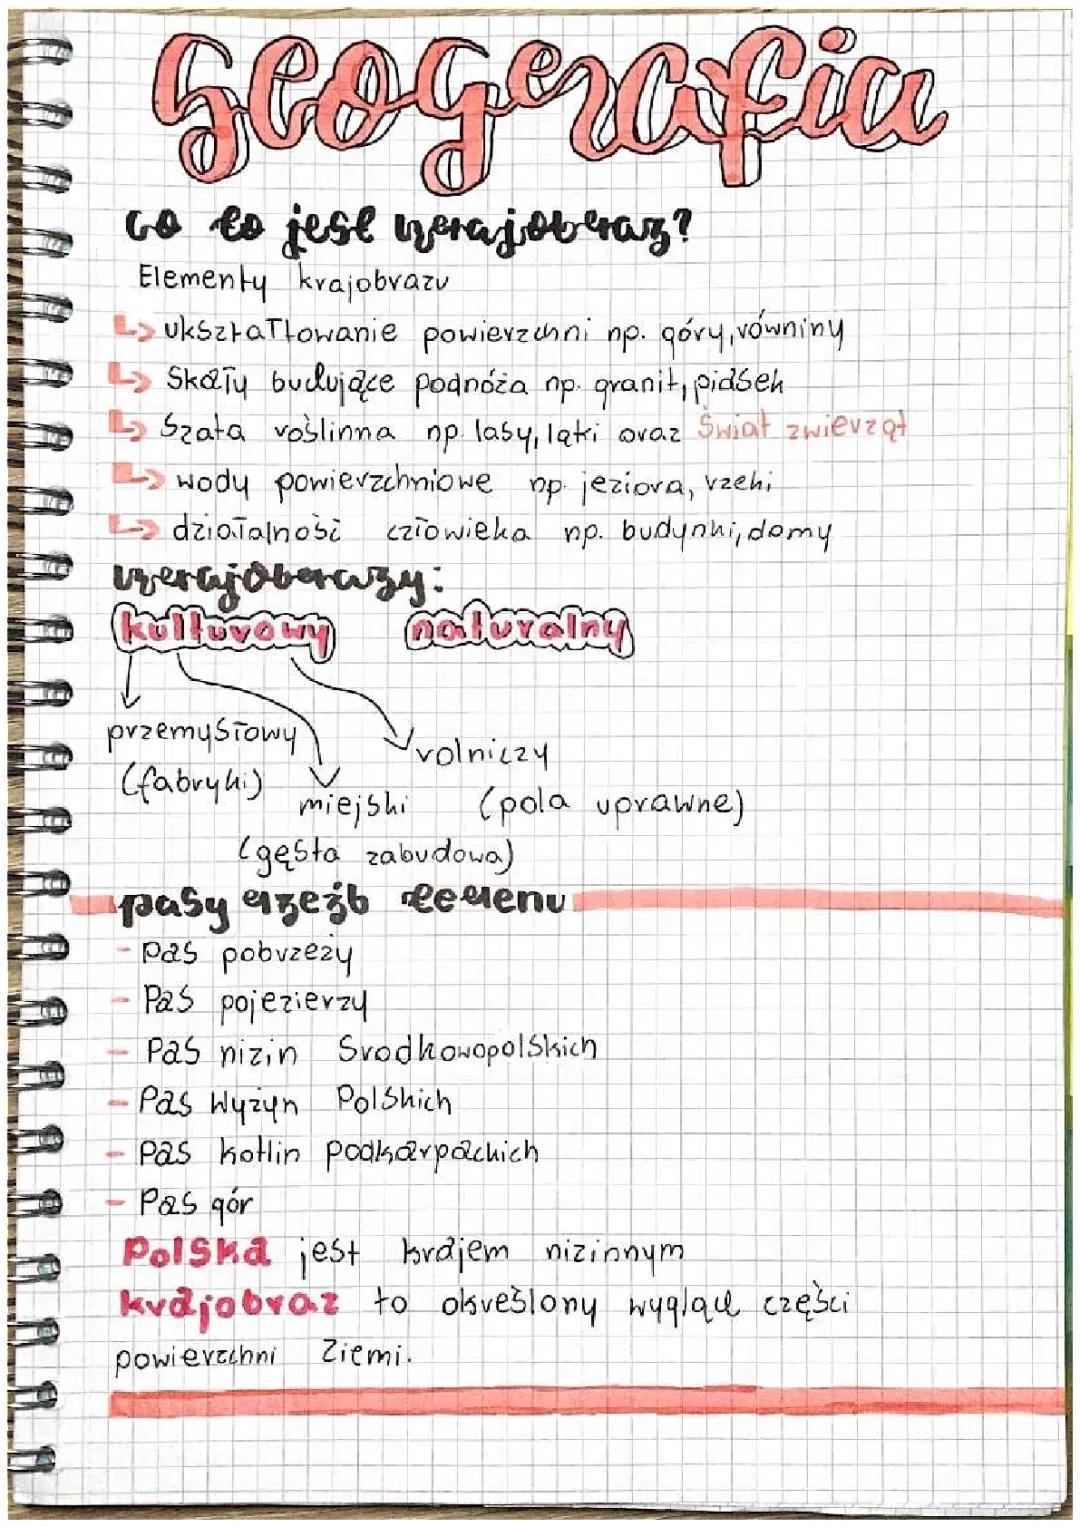 Geografia
co to jest krajobraz?
Elementy krajobrazu
ukształtowanie powierzchni np. góry, równiny
Skały budujące podnóża np. granit, piasek
Szata roślinna np. lasy, łąki oraz Świat zwierząt
wody powierzchniowe np. jeziora, rzeki
działalność człowieka np. budynki, domy
krajobrazy:
kulturowy naturalny
przemysłowy
rolniczy
(fabryki)
miejski
(pola uprawne)
(gęsta zabudowa)
pasy rzeźb terenu
- Pas pobrzeży
- Pas pojezierzy
- Pas nizin Środkowopolskich
- Pas Wyżyn Polskich
- Pas kotlin Podkarpackich
- Pas gór
Polska jest krajem nizinnym
krajobraz to określony wygląd części
powierzchni Ziemi.